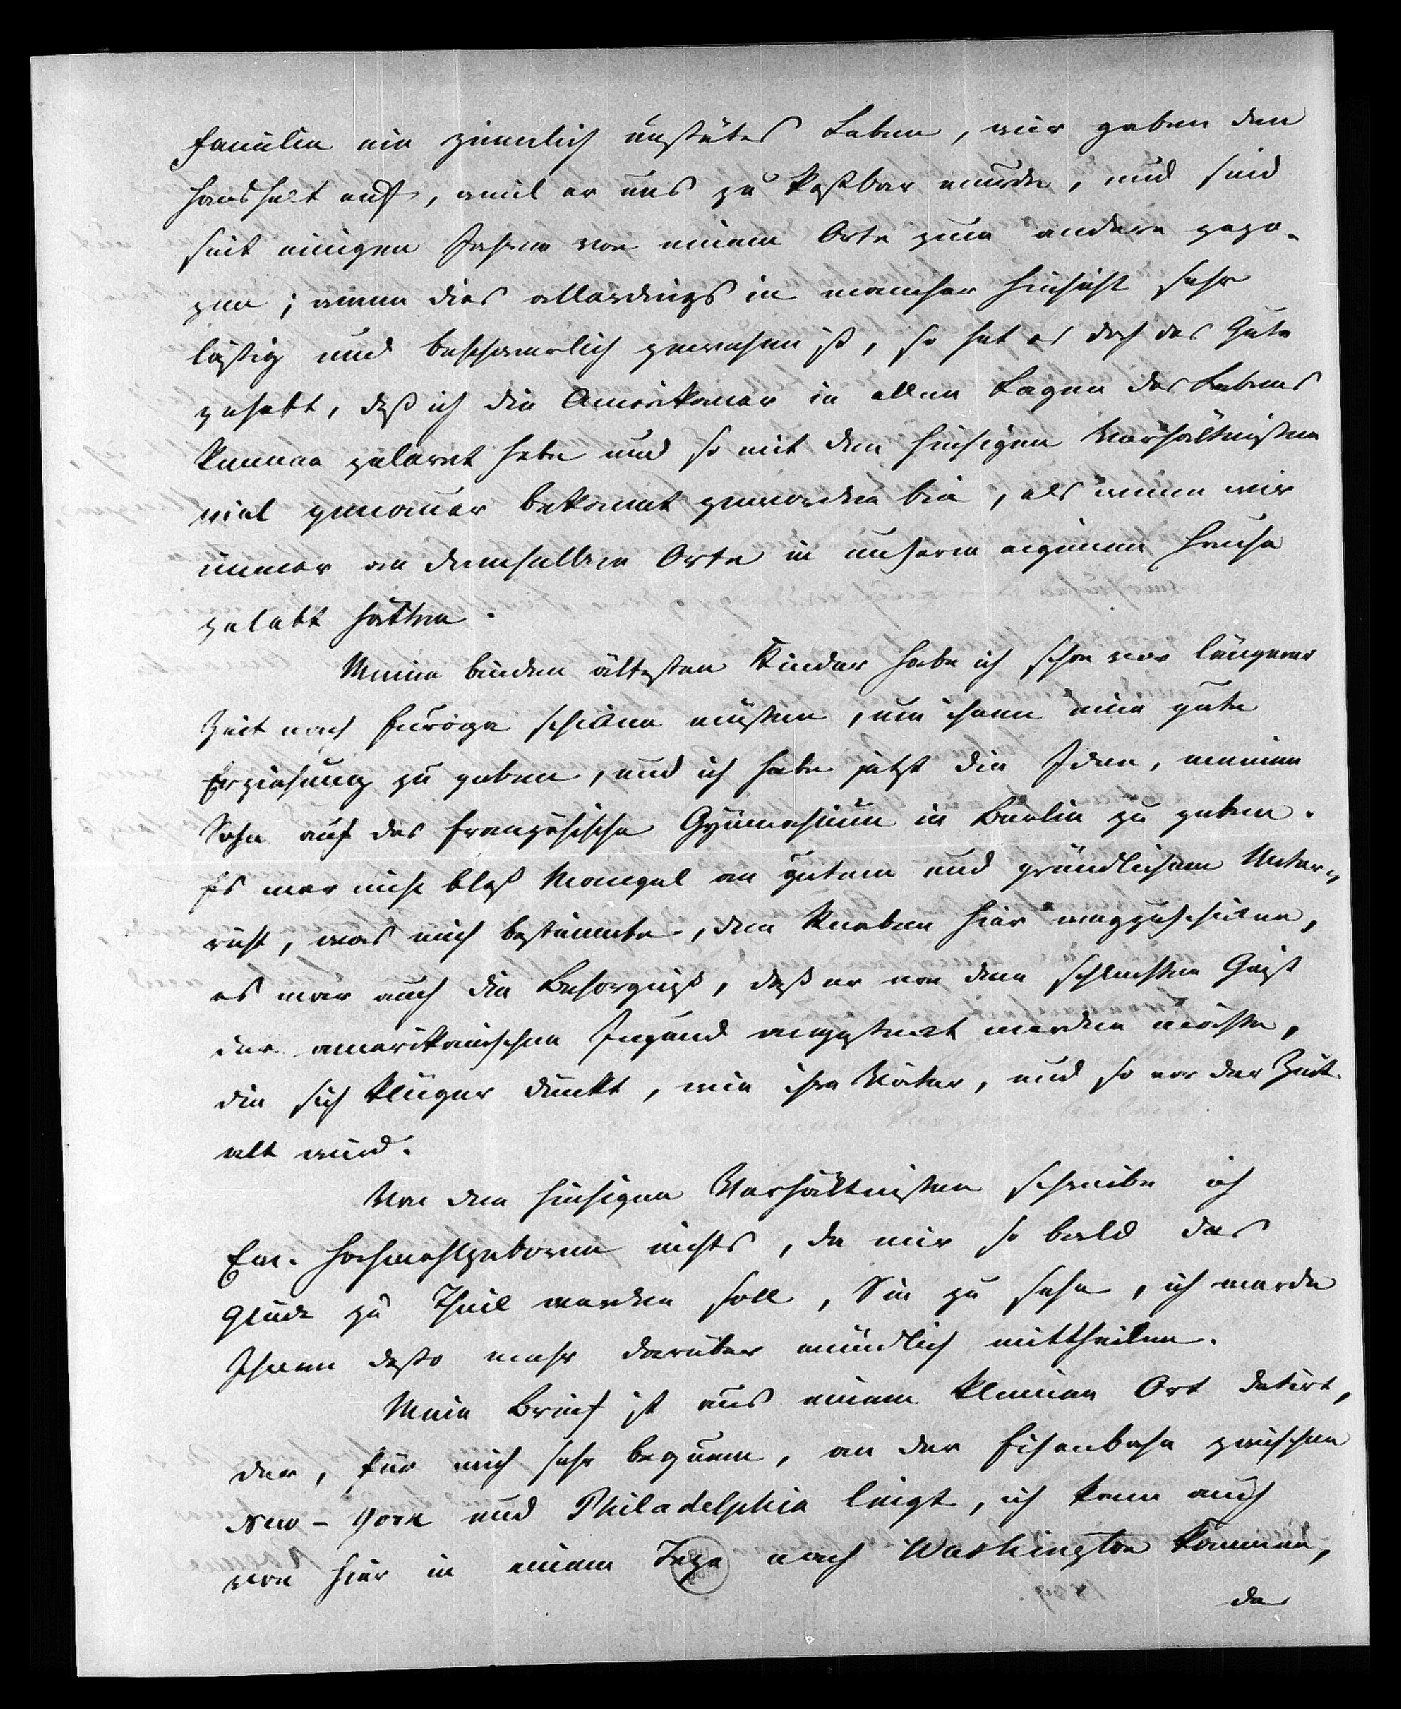 Familie ein ziemlich unstätes Leben, wir gaben den
Haushalt auf, weil er uns zu kostbar wurde, und sind
seit einigen Jahren von einem Orte zum andern gezo-
gen; wenn dies allerdings in mancher Hinsicht sehr
lästig und beschwerlich gewesen ist, so hat es doch das Gute
gehabt, daß ich die Amerikaner in allen Lagen des Lebens
kennen gelernt habe und so mit den hiesigen Verhältnissen
viel genauer bekannt geworden bin, als wenn wir
immer an demselben Orte in unserm eigenen Hause
gelebt hätten.
Meine beiden ältesten Kinder habe ich schon vor längerer
Zeit nach Europa schicken müssen, um ihnen eine gute
Erziehung zu geben, und ich habe jetzt die Idee, meinen
Sohn auf das französische Gymnasium in Berlin zu geben.
Es war nicht bloß Mangel an gutem und gründlichem Unter-
richt, was mich bestimmte, den Knaben hier wegzuschicken,
es war auch die Besorgniß, daß er von dem schlechten Geist
der amerikanischen Jugend angesteckt werden möchte,
die sich klüger dünkt, wie ihre Väter, und so vor der Zeit
alt wird.
Von den hiesigen Verhältnissen schreibe ich
Ew. Hochwohlgeboren nichts, da mir so bald das
Glück zu Theil werden soll, Sie zu sehen, ich werde
Ihnen desto mehr darüber mündlich mittheilen.
Mein Brief ist aus einem kleinen Ort datirt,
der, für mich sehr bequem, an der Eisenbahn zwischen
New-York und Philadelphia liegt, ich kann auch
von hier in einem Tage nach Washington kommen,
da